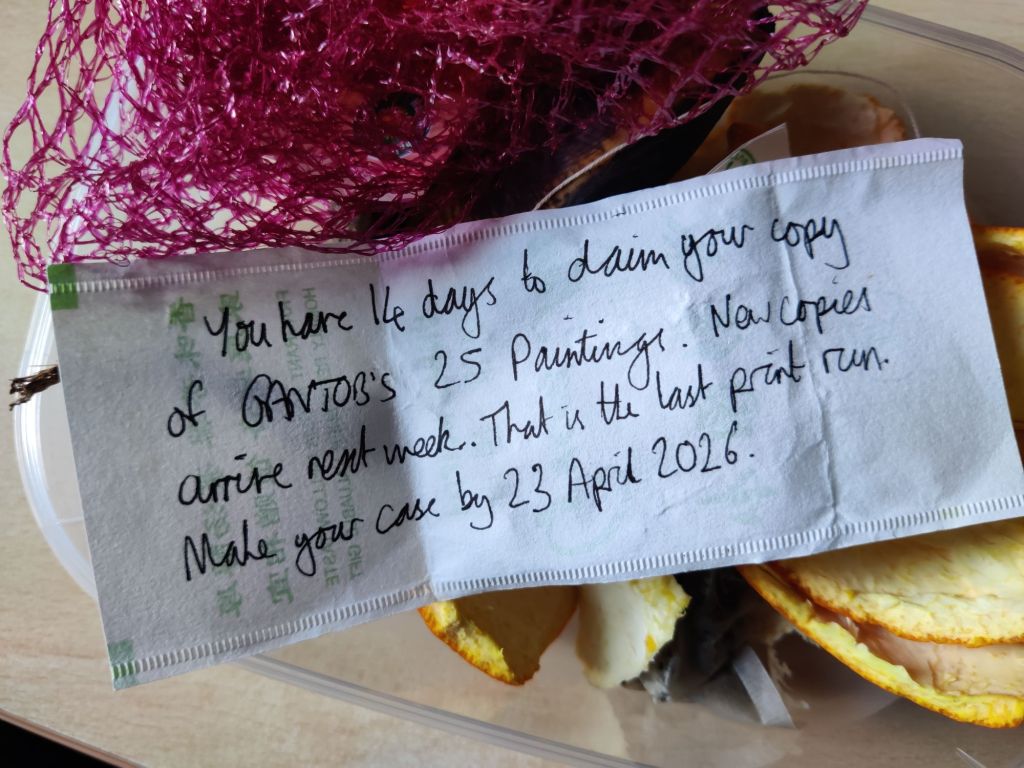 You have 14 days to claim your copy
of GANTOB'S 25 Paintings. New copies
arrive next week. That is the last print run.
Make your case by 23 April 2026.